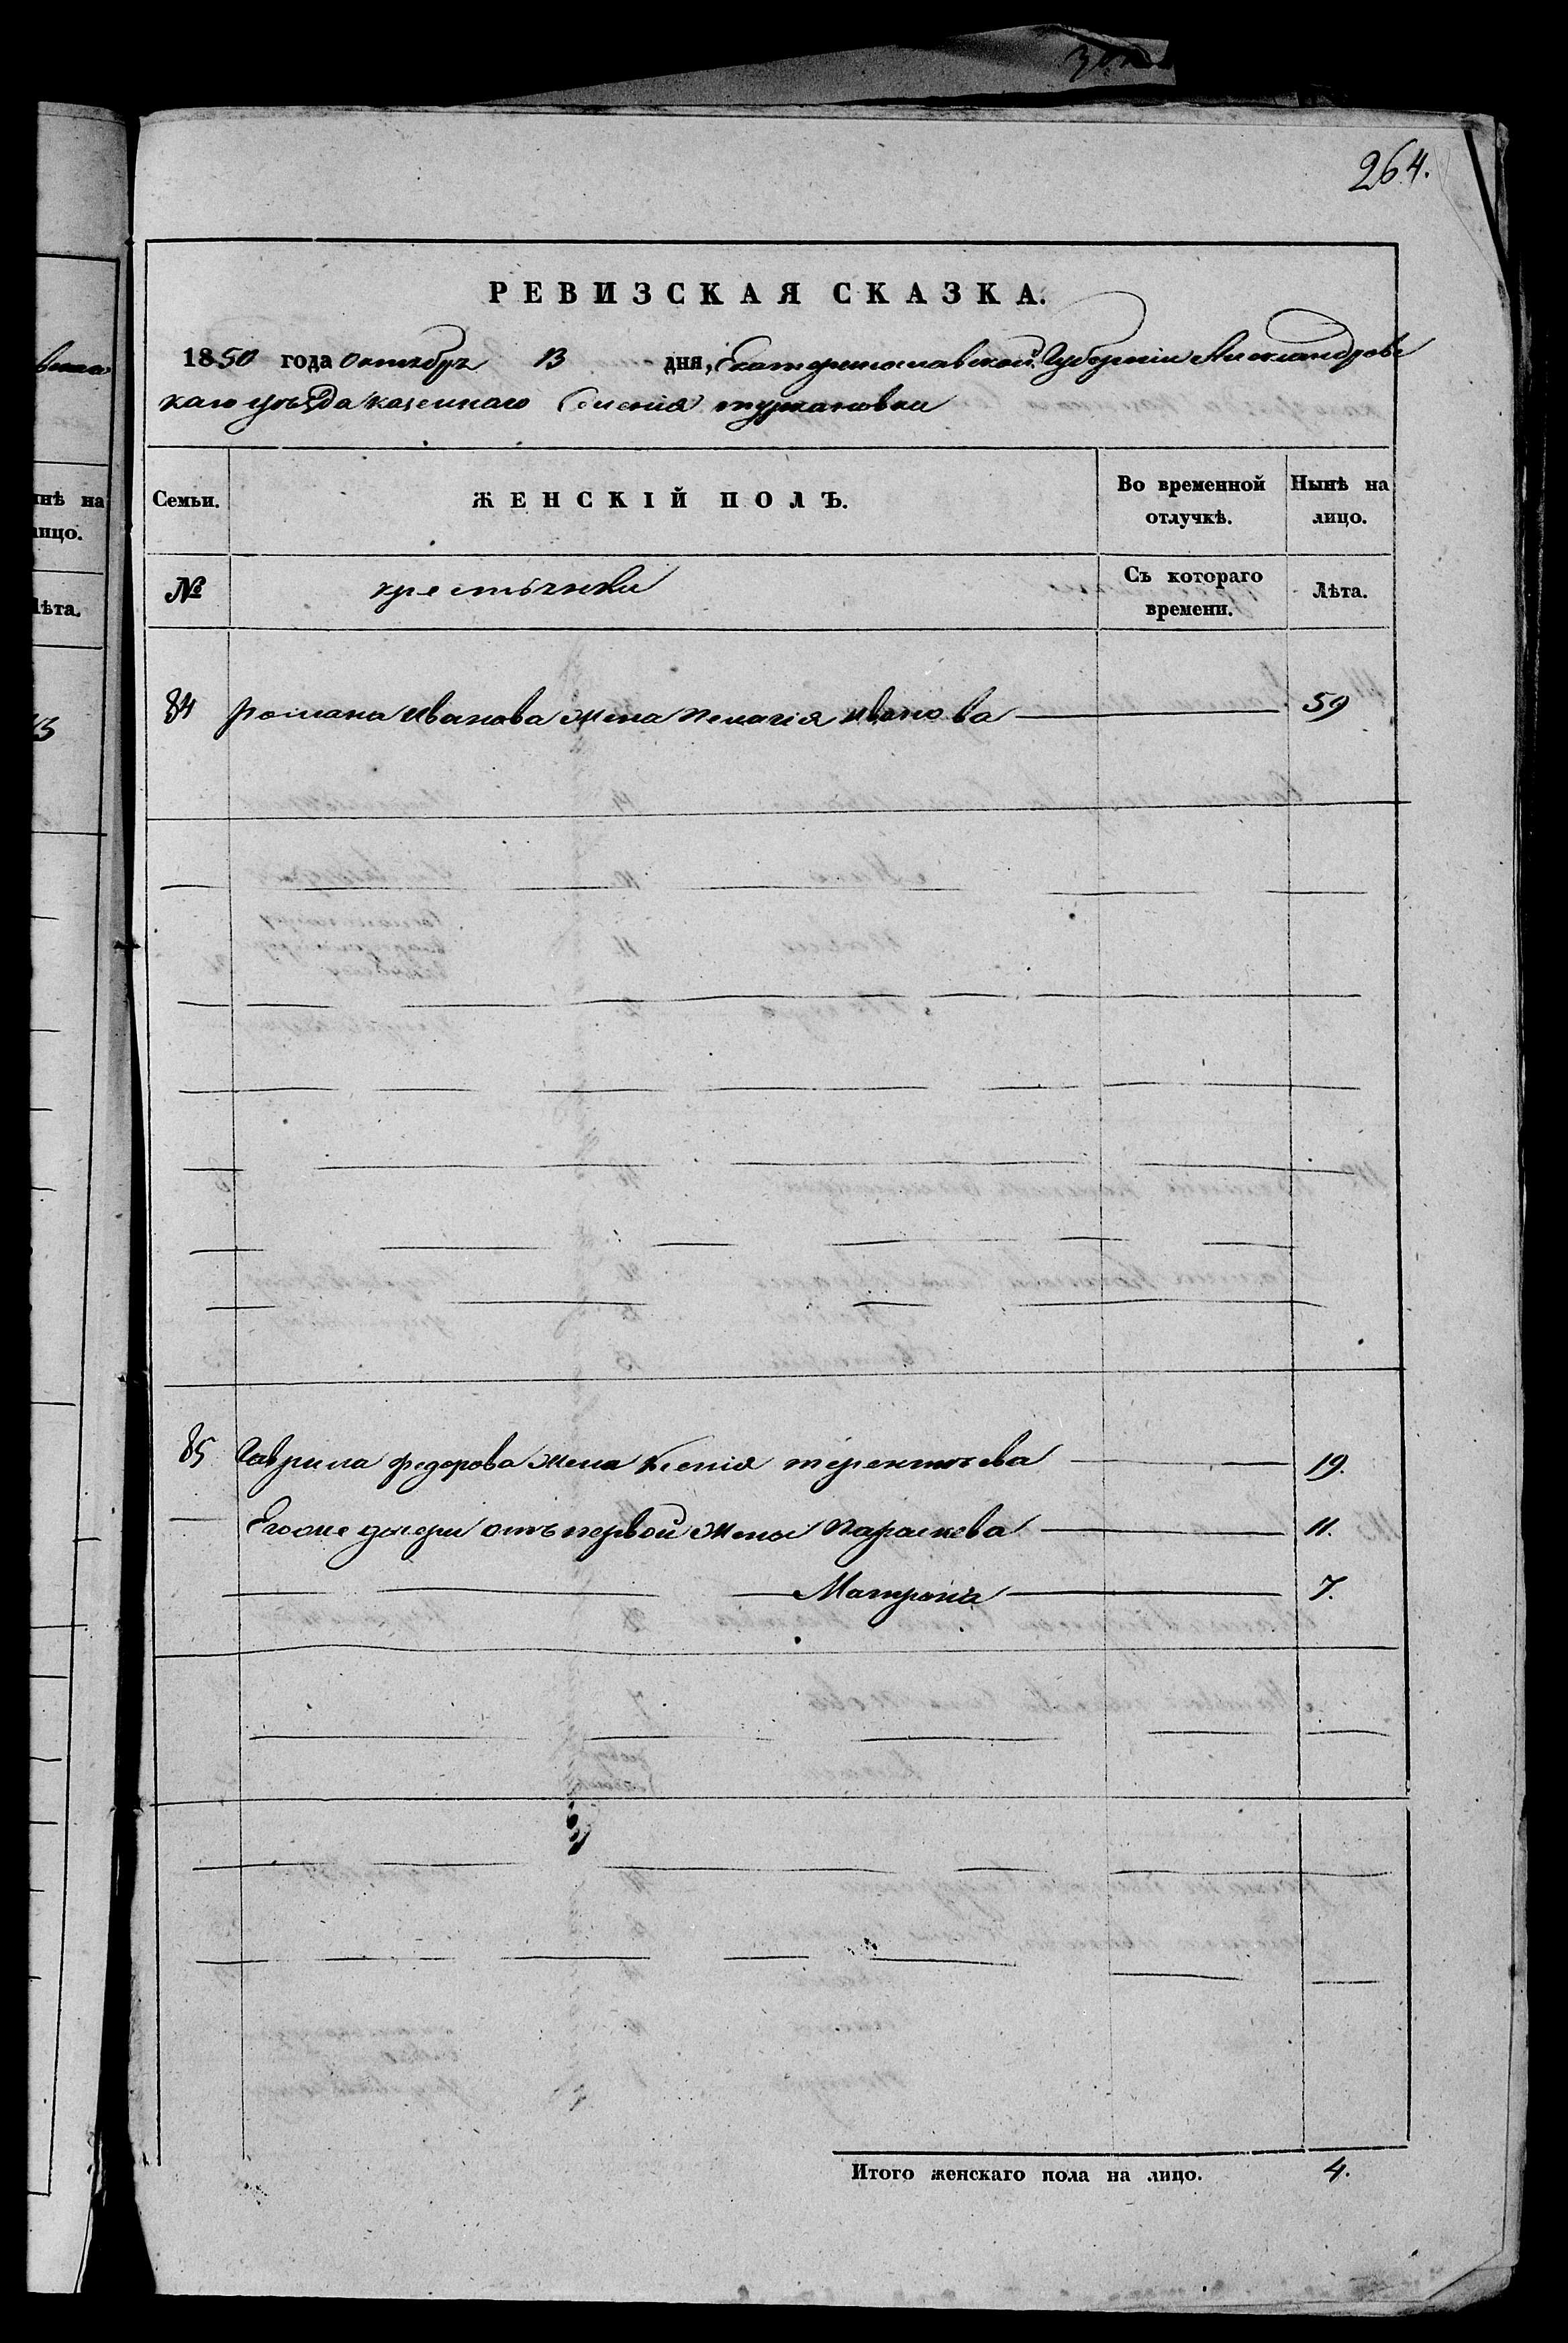 264.
РЕВИЗСКАЯ СКАЗКА.
1850 года октября 13 дня, Екатеринославской Губерніи Александровс
каго уѣзда казеннаго Селенія туркановки
Семьи. ЖЕНСКІЙ ПОЛЪ. Во временной отлучкѣ. Нынѣ на лицо.
№ крестьянки Съ котораго времени. Лѣта.
84 романа Иванова жена пелагія иванова 59
85 Гаврила федорова жена Ксенія терентьева 19.
Его же дочери отъ первой жены Параскева 11.
Матрона 7.
Итого женскаго пола на лицо. 4.